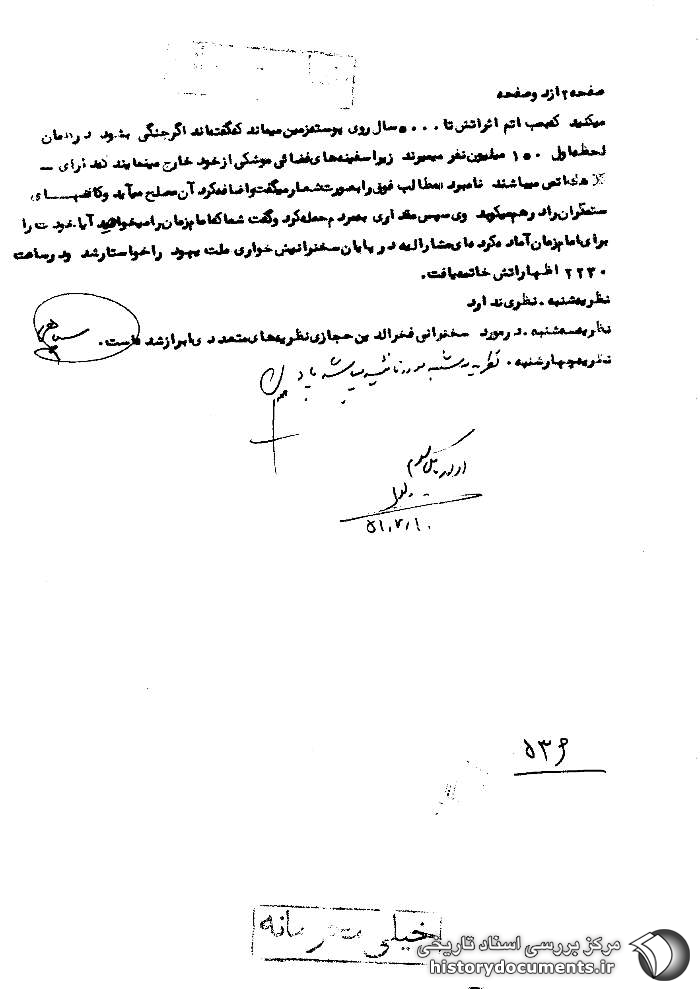 صفحه ۲ از دو صفحه
میکنید که بمب اتم اثراتش تا ۵۰۰۰ سال روی پوسته زمین میماند که گفته اند اگر جنگی بشود در همان
لحظه اول ۱۵۰ میلیون نفر میمیرند زیرا سفینه های فضائی موشکی از خود خارج مینمایند که دارای —
کلاهک اتمی میباشند نامبرده مطالب فوق را بصورت شعار میگفت و اضافه کرد آن مصلح میآید و کاخهـــای
ستمگران را درهم میکوبد وی سپس مقداری بمردم حمله کرد و گفت شما که امام زمان را میخواهید آیا خودت را
برای امام زمان آماده کرده ای مشارالیه در پایان سخنرانیش خواری ملت یهود را خواستار شد و در ساعت
۲۲۳۰ اظهاراتش خاتمه یافت.
نظریه شنبه . نظری ندارد
نظریه سه شنبه . در مورد سخنرانی فخرالدین حجازی نظریه های متعددی ابراز شده است .
نظریه چهارشنبه . نظریه سه شنبه مورد تائید میباشد
۵۱٫۷٫۱۰
۵۳۶
خیلی محرمانه
مرکز بررسی اسناد تاریخی
historydocuments.ir